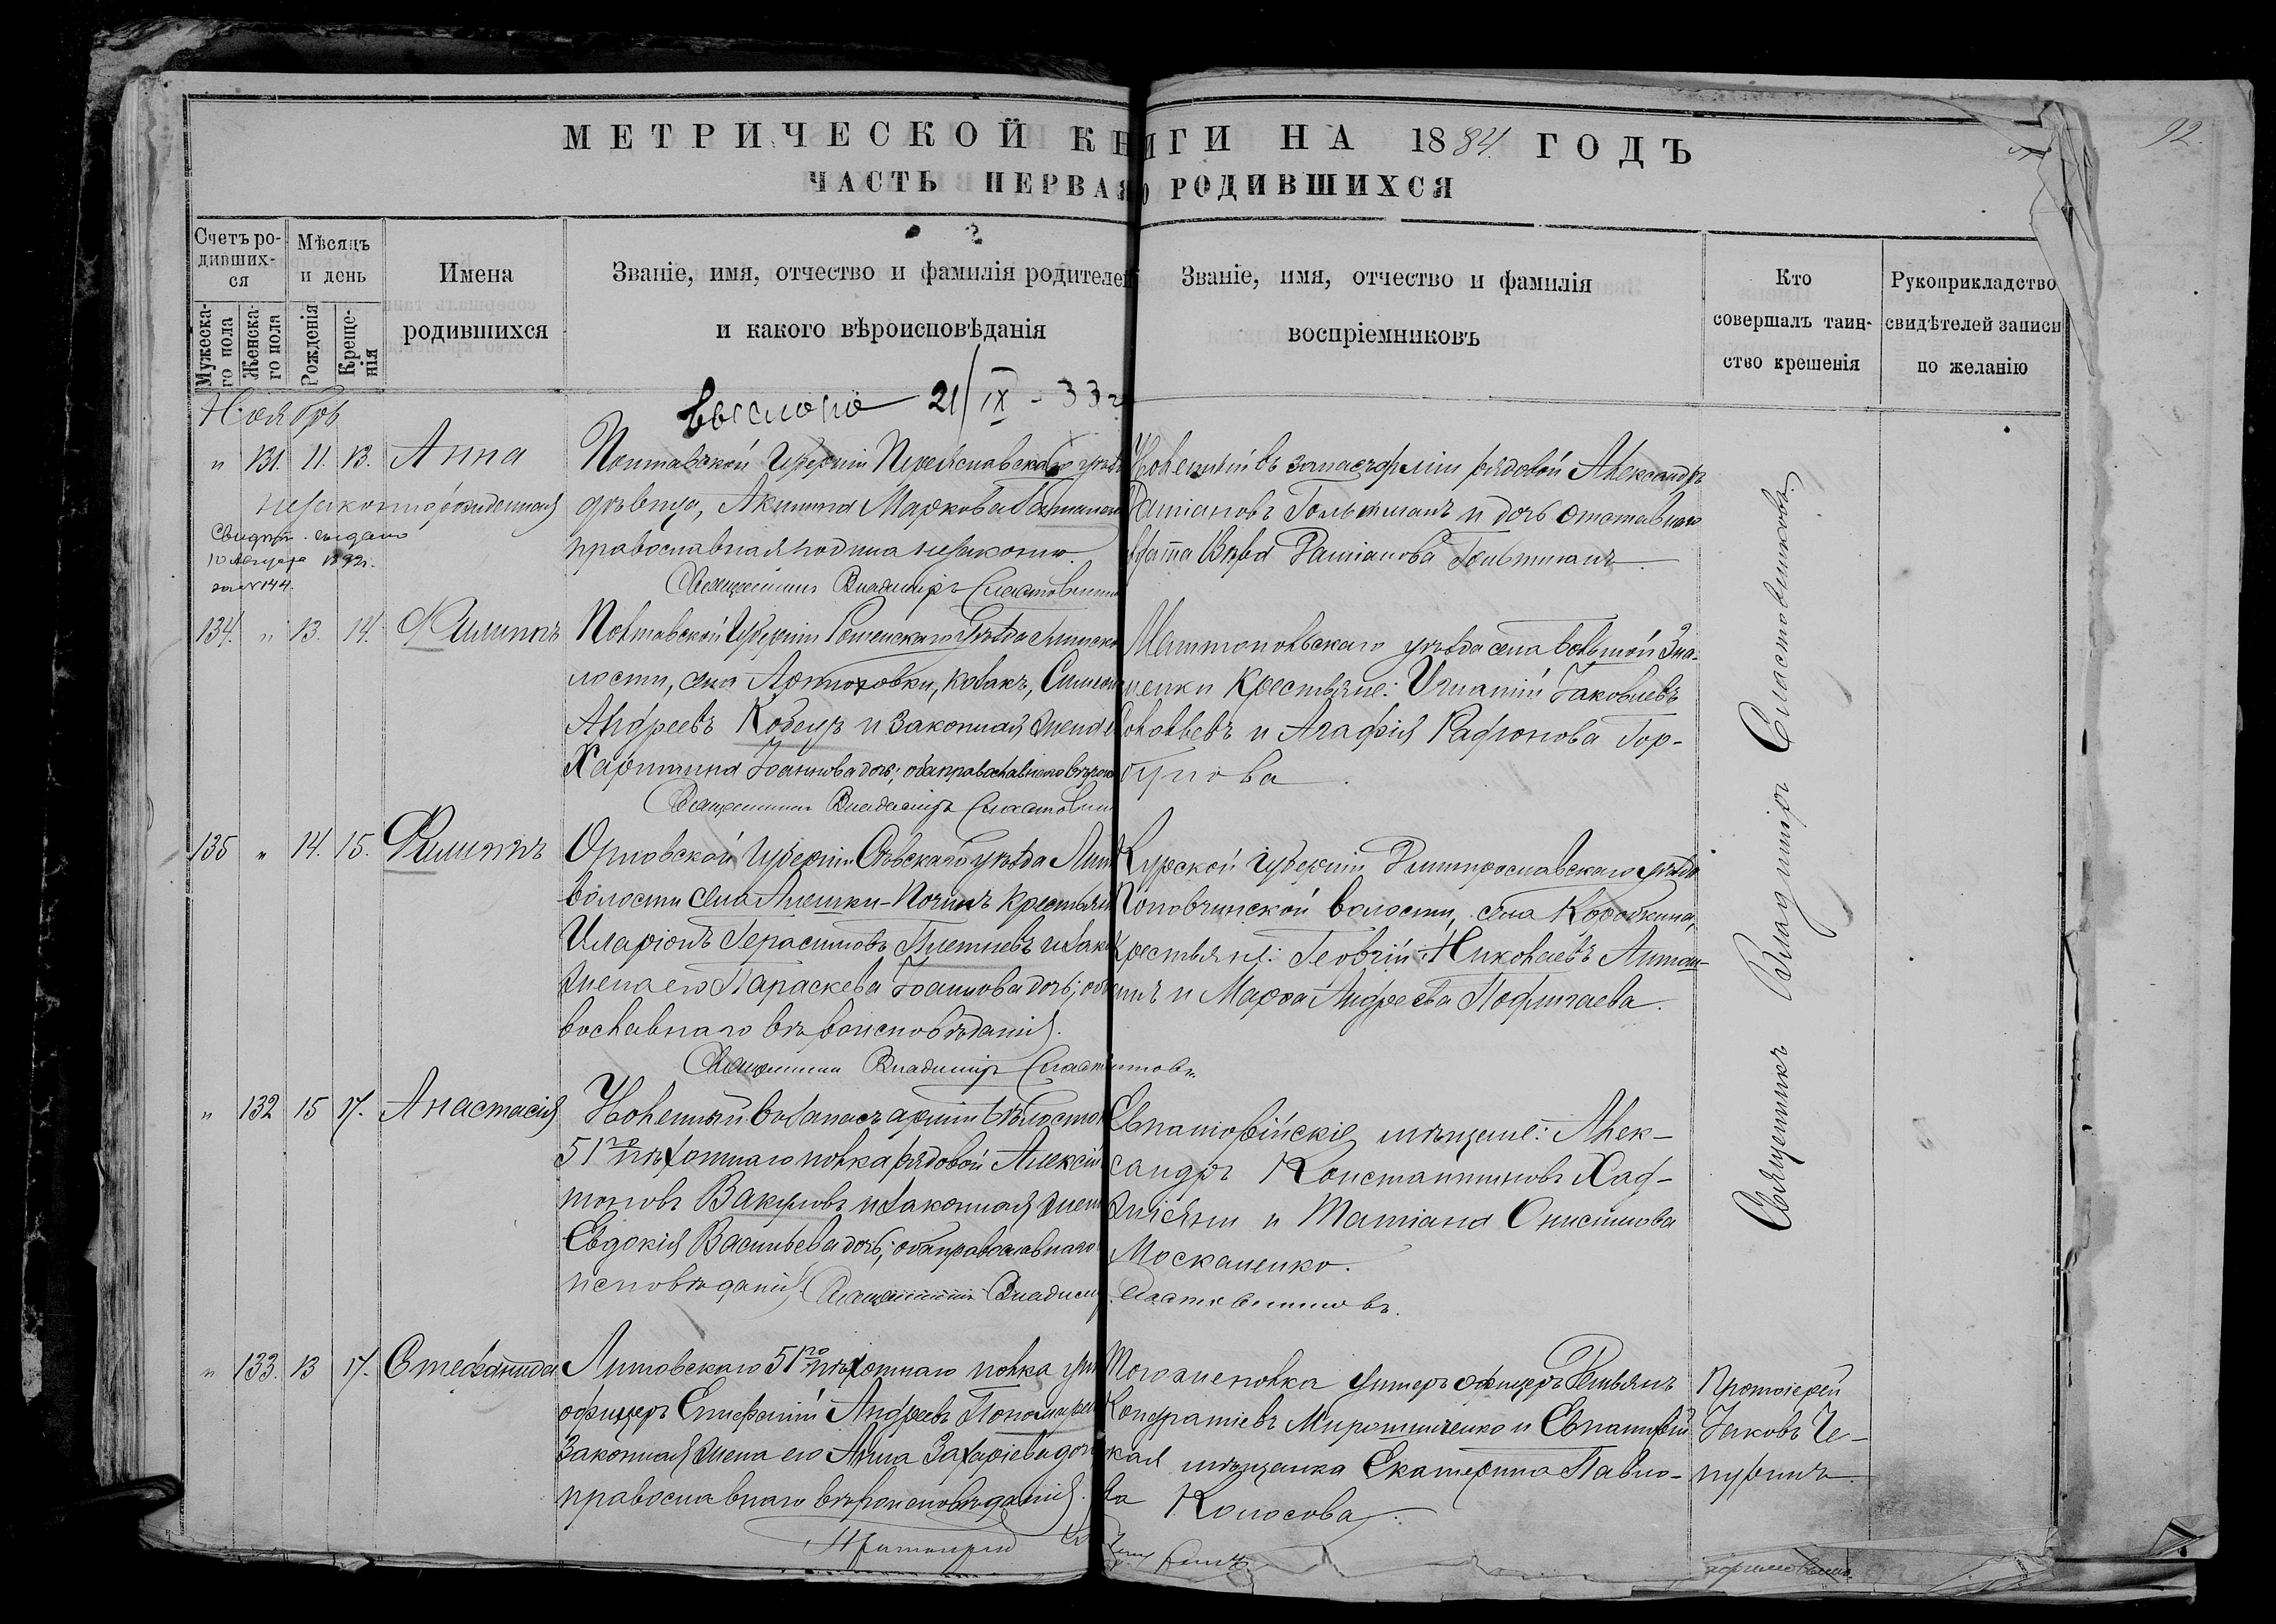 92.
МЕТРИЧЕСКОЙ КНИГИ НА 1884. ГОДЪ
ЧАСТЬ ПЕРВАЯ О РОДИВШИХСЯ
Счетъ ро-
дивших-
ся
Мужеска-
го пола
Женска-
го пола
Мѣсяцъ
и день
Рожденія
Креще-
нія
Имена
родившихся
Званіе, имя, отчество и фамилія родителей
и какого вѣроисповѣданія
Званіе, имя, отчество и фамилія
воспріемниковъ
Кто
совершалъ таин-
ство крешенія
Рукоприкладство
свидѣтелей записи
по желанію
Ноябрь
21/IX - 33г
" 131. 11. 13. Анна
незаконнорожденная
выдано
1892г.
за № 144.
Полтавской Губерніи Переяславскаго уѣзда
дѣвица, Акилина Маркова
православная родила незаконно.
Священникъ Владиміръ Сластовник
Уволенный въ запасъ арміи рядовой Александръ
Даміановъ Гольтманъ и дочь отставного
Вѣра Даміанова Гольтманъ.
134. " 13. 14. Филиппъ
Полтавской Губерніи Роменскаго Уѣзда
лости, села Артюховки, козакъ, Симеон
Андреевъ Кобецъ и законная жена е
Харитина Іоаннова дочь; оба православнаго вѣроис
Священникъ Владиміръ Сластовник
Мелитопольскаго уѣзда села Большой Зна-
менки Крестьяне: Игнатій Іаковлевъ
и Агафія Родіонова Гор-
бунова.
135 " 14. 15. Филиппъ
Орловской Губерніи Сѣвскаго уѣзда
волости села Алешки-Починъ крестьян
Иларіонъ Герасимовъ Плетневъ и зак
жена его Параскева Іоаннова дочь; оба
вославнаго вѣроисповѣданія.
Священникъ Владиміръ Сластовников
Курской Губерніи Дмитрославскаго уѣзда
Поповчинской волости, села
Крестьяне: Георгій Николаевъ
и Марѳа Андреева
" 132 15 17. Анастасія
Уволенный въ запасъ арміи Бѣлосток
51го пѣхотнаго полка рядовой Алексій
тоновъ Вакуловъ и законная жен
Евдокія Васильева дочь; оба православнаго
исповѣданія. Священникъ Владимі
Сластовниковъ.
Евпаторійскіе мѣщане: Алек-
сандръ Константиновъ Хад-
жіевъ и Татіана Онисимова
Москаленко.
" 133. 13 17. Стефанида
Литовскаго 51го пѣхотнаго полка унт
офицеръ Епифаній Андреевъ Пономарен
законная жена его Анна Захаріева доч
православнаго вѣроисповѣданія.
Протоіерей
Того же полка унтеръ офицеръ Демьянъ
Кондратіевъ Мирошниченко и Евпаторій
ская мѣщанка Екатерина Павло-
ва Колосова.
Священникъ Владиміръ Сластовниковъ.
Протоіерей
Іаковъ Че-
пуринъ.